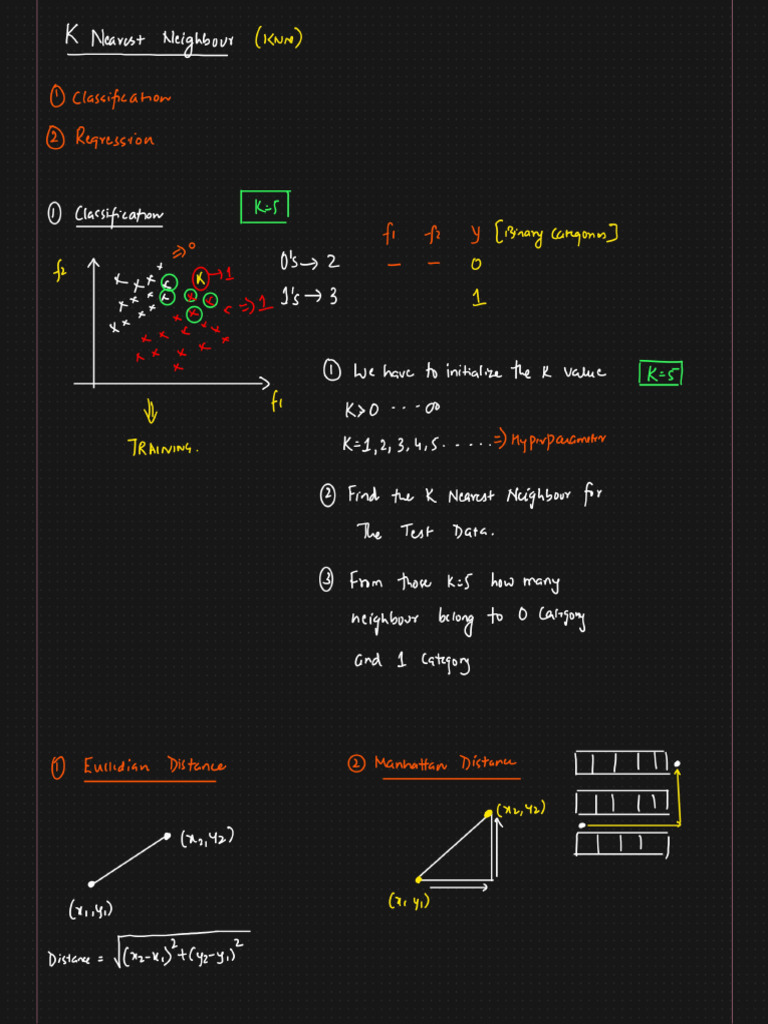 K Nearest Neighbour (KNN)
① Classification
② Regression
① Classification
K=5
f1 f2 y [Binary Categories]
⇒ 0
f2
K → 1
0's → 2
— — 0
1's → 3
1
⇒ 1
f1
TRAINING.
① We have to initialize the K value K=5
K>0 ....∞
K=1,2,3,4,5...... ⇒ Hyperparameter
② Find the K Nearest Neighbour for
The Test Data.
③ From those K=5 how many
neighbour belong to 0 Category
and 1 Category
① Euclidian Distance
② Manhattan Distance
(x2,y2)
(x1,y1)
Distance = √(x2-x1)²+(y2-y1)²
(x2,y2)
(x1 y1)